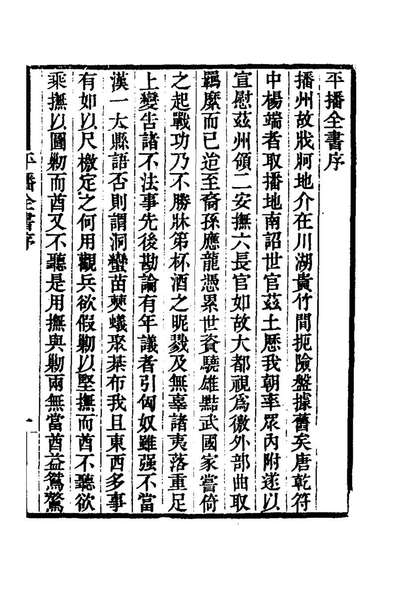 平播全書序
播州故戕牁地介在川湖貴竹間扼險盤據舊矣唐乾符
中楊端者取播地南詔世官茲土歷我朝率眾內附遂以
宣慰茲州領二安撫六長官如故大都視爲徼外部曲取
羈縻而已迨至裔孫應龍憑累世資驍雄黠武國家嘗倚
之起戰功乃不勝牀笫杯酒之昵戮及無辜諸夷落重足
上變告諸不法事先後勘論有年議者引匈奴雖强不當
漢一大縣語否則謂洞蠻苗僰蟻聚棊布我且東西多事
有如以尺檄定之何用觀兵欲假勦以堅撫而酋不聽欲
乘撫以圖勦而酋又不聽是用撫與勦兩無當酋益鴛驁
平播全書序
一